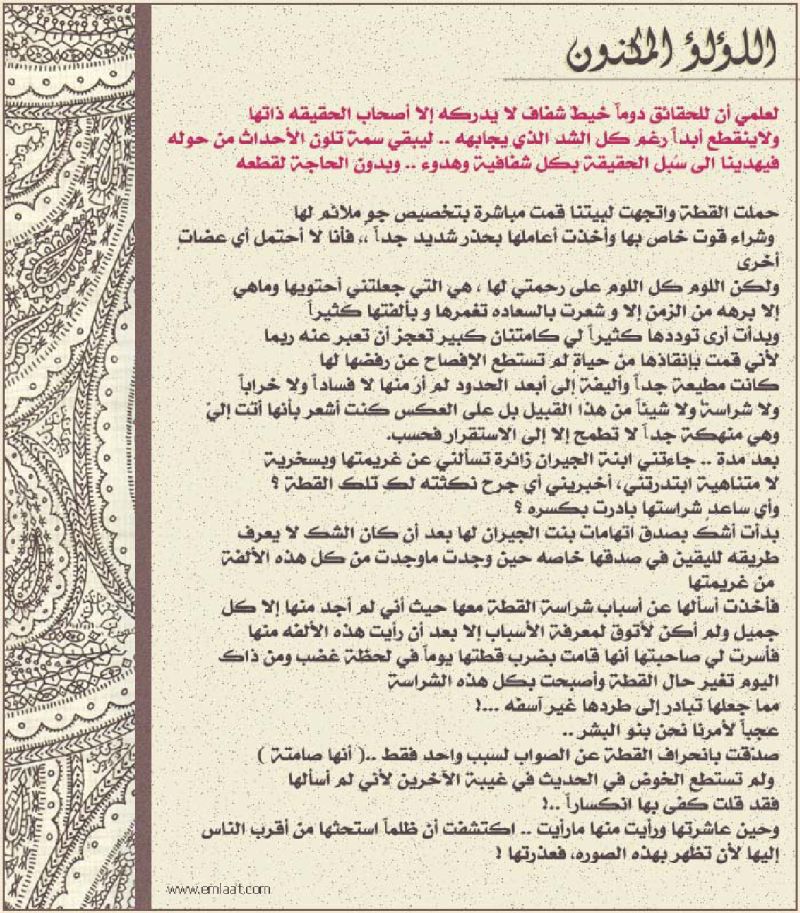 اللؤلؤ المكنون
لعلمي أن للحقائق دوماً خيط شفاف لا يدركه إلا أصحاب الحقيقه ذاتها
ولاينقطع أبداً رغم كل الشد الذي يجابهه .. ليبقي سمة تلون الأحداث من حوله
فيهدينا الى سبل الحقيقة بكل شفافية وهدوء .. وبدون الحاجة لقطعه
حملت القطة واتجهت لبيتنا قمت مباشرة بتخصيص جو ملائم لها
وشراء قوت خاص بها وأخذت أعاملها بحذر شديد جداً ،، فأنا لا أحتمل أي عضات
أخرى
ولكن اللوم كل اللوم على رحمتي لها ، هي التي جعلتني أحتويها وماهي
إلا برهه من الزمن إلا و شعرت بالسعاده تغمرها و بألفتها كثيراً
وبدأت أرى توددها كثيراً لي كامتنان كبير تعجز أن تعبر عنه ربما
لأني قمت بإنقاذها من حياةٍ لم تستطع الإفصاح عن رفضها لها
كانت مطيعة جداً وأليفة إلى أبعد الحدود لم أر منها لا فساداً ولا خراباً
ولا شراسةً ولا شيئاً من هذا القبيل بل على العكس كنت أشعر بأنها أتت إليّ
وهي منهكة جداً لا تطمح إلا إلى الاستقرار فحسب.
بعد مدة .. جاءتني ابنة الجيران زائرة تسألني عن غريمتها وبسخرية
لا متناهية ابتدرتني، أخبريني أي جرح نكثته لك تلك القطة ؟
وأي ساعد شراستها بادرت بكسره ؟
بدأت أشك بصدق اتهامات بنت الجيران لها بعد أن كان الشك لا يعرف
طريقه لليقين في صدقها خاصه حين وجدت ماوجدت من كل هذه الألفة
من غريمتها
فأخذت أسألها عن أسباب شراسة القطة معها حيث أني لم أجد منها إلا كل
جميل ولم أكن لأتوق لمعرفة الأسباب إلا بعد أن رأيت هذه الألفه منها
فأسرت لي صاحبتها أنها قامت بضرب قطتها يوماً في لحظة غضب ومن ذاك
اليوم تغير حال القطة وأصبحت بكل هذه الشراسة
مما جعلها تبادر إلى طردها غير آسفه ...!
عجباً لأمرنا نحن بنو البشر ..
صدّقت بانحراف القطة عن الصواب لسبب واحد فقط ..( أنها صامتة )
ولم تستطع الخوض في الحديث في غيبة الآخرين لأني لم أسألها
فقد قلت كفى بها انكساراً ..!
وحين عاشرتها ورأيت منها مارأيت .. اكتشفت أن ظلماً استحثها من أقرب الناس
إليها لأن تظهر بهذه الصوره، فعذرتها !
www.emlaat.com